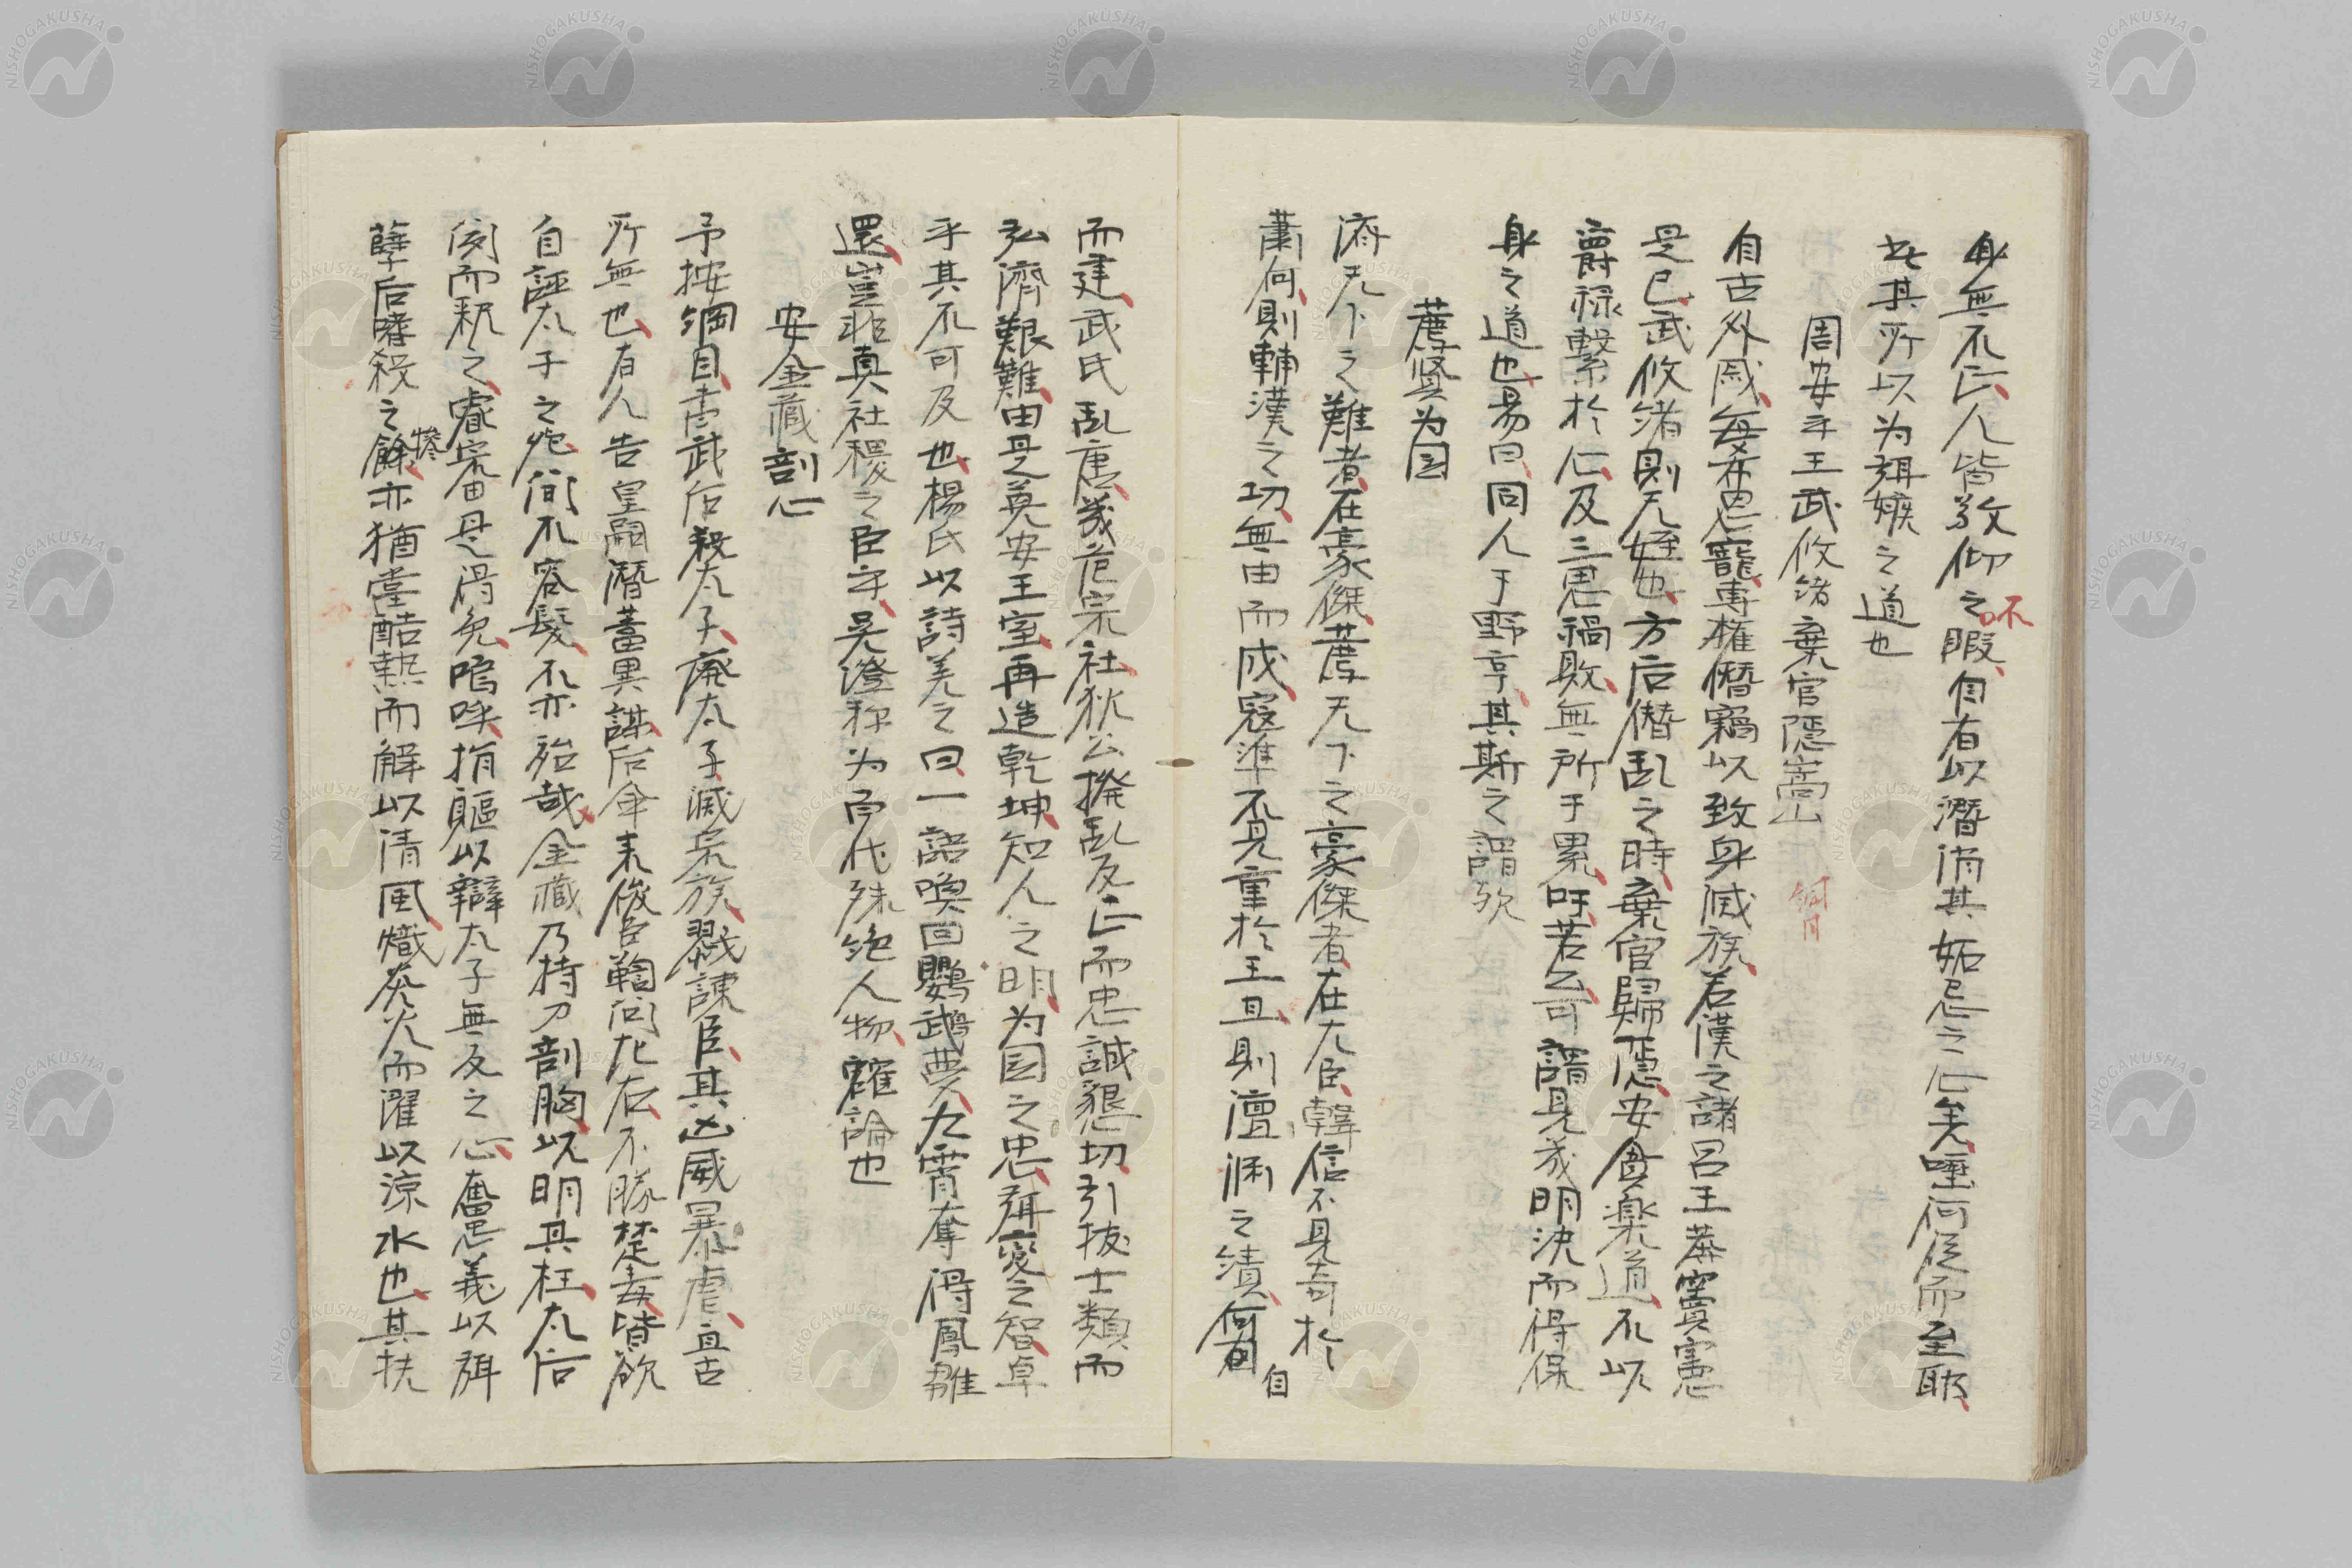 身無不正人皆敬仰之不暇自有以潜消其妬忌之心矣唾何従而至耶
此其所以为弭嫉之道也
周安平王武攸緒棄官隠嵩山
自古外戚每希恩寵専権僭竊以致身滅族若漢之諸呂王莽竇憲
是已武攸緒則无姪也方后僭乱之時棄官歸隠安貧楽道不以
爵禄繫於心及三思禍敗無所于累吁若公可謂見幾明決而得保
身之道也易曰同人于野亨其斯之謂欤
薦贤为国
済天下之難者在豪傑薦天下之豪傑者在大臣韓信不見奇於
蕭何則輔漢之功無由而成寇準不見重於王旦則澶渊之績何自
而建武氏乱唐幾危宗社狄公撥乱反正而忠誠懇切引拔士類而
弘濟艱難由是克安王室再造乾坤知人之明为国之忠弭変之智卓
乎其不可及也楊氏以詩美之曰一語喚回鸚鵡夢九霄奪得鳳雛
還豈非真社稷之臣乎吴澄称为百代殊绝人物確論也
安金藏剖心
予按綱目書武后殺太子廃太子滅宗族戮諫臣其凶威暴虐亘古
所無也有人告皇嗣潜蓄異謀后命来俊臣鞫问左右不勝楚毒皆欲
自誣太子之死间不容髮不亦殆哉金藏乃持刀剖胸以明其枉太后
闵而釈之睿宗由是得免嗚呼捐軀以辯太子無反之心奮忠義以弭
孽后睹殺之惨餘亦猶當酷熱而解以清風熾炎火而濯以涼水也其扶